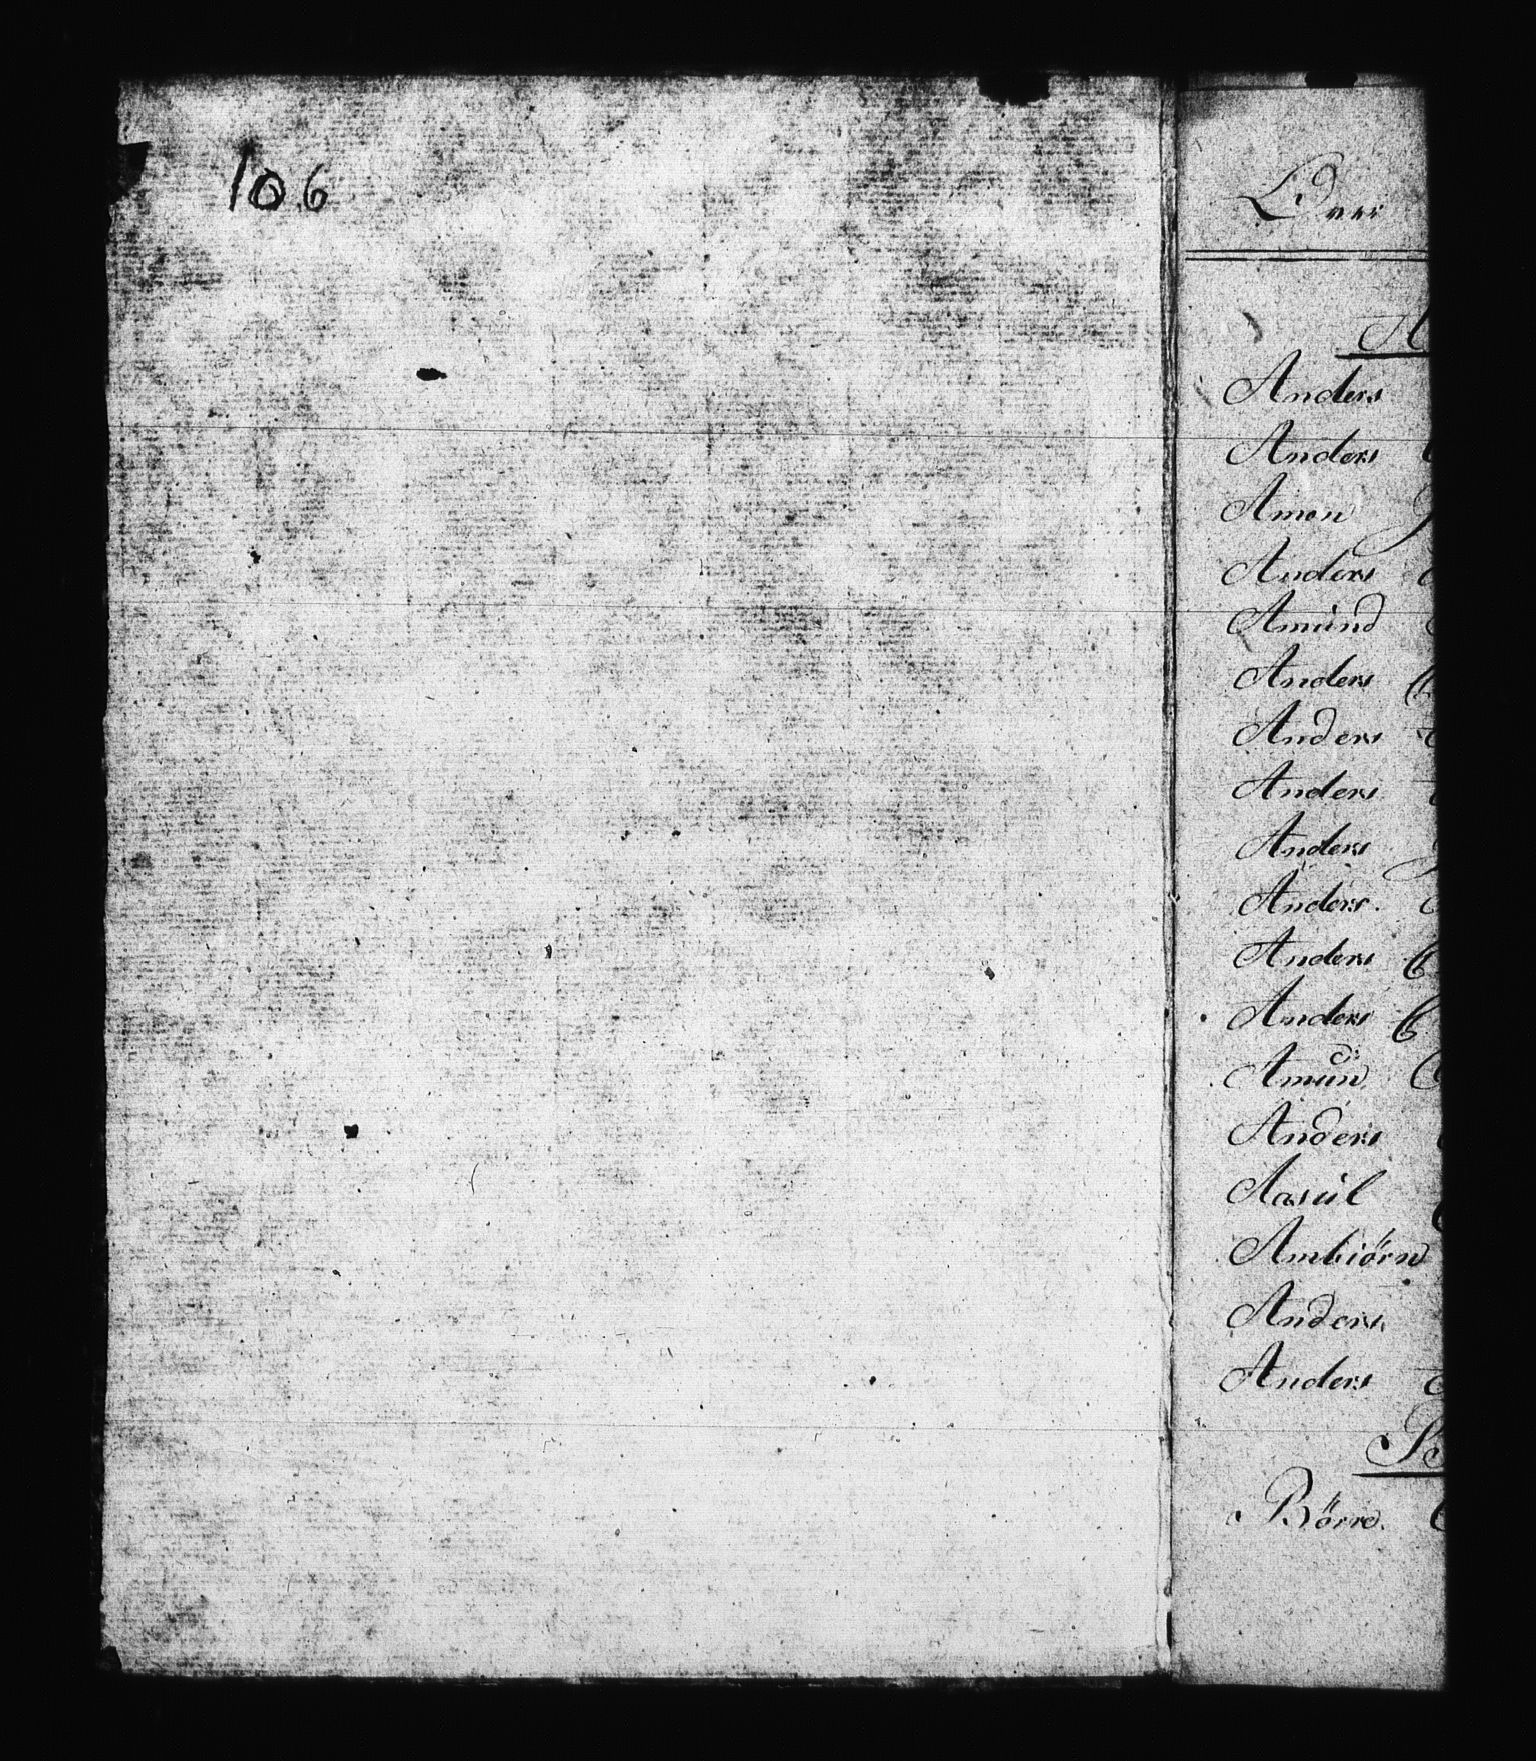 106
A
Anders
Anders
Amon
Anders
Amund
Anders
Anders
Anders
Anders
Anders
Anders
Anders
Amund
Anders
Aasül
Ambiörn
Anders
Anders
B
Börre